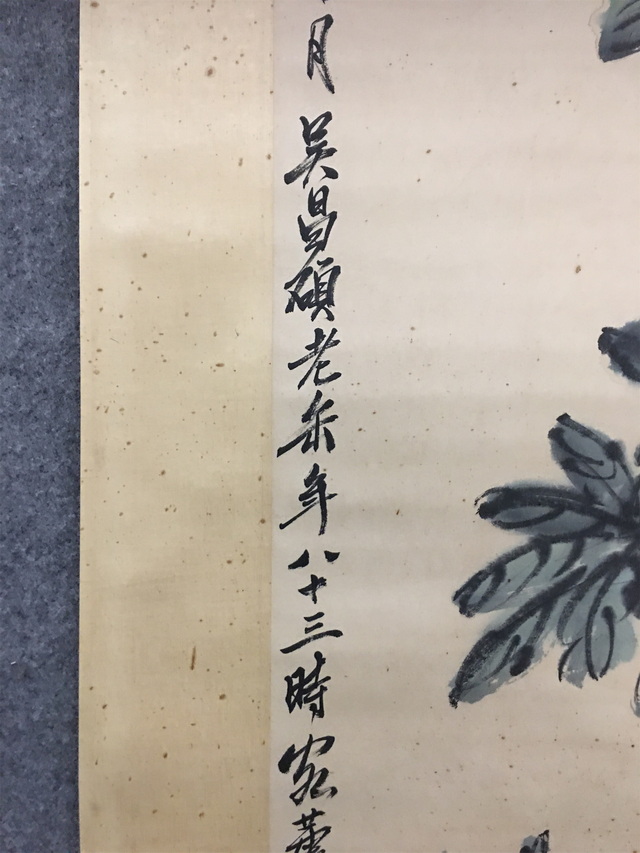 月吴昌碩老缶年八十三時客